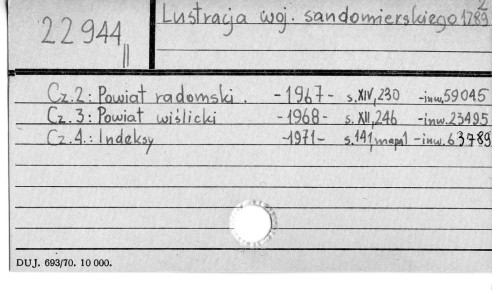 2
22944 Lustracja woj. sandomierskiego 1789
II
Cz.2: Powiat radomski. -1967- s. XIV, 230 -inw. 59045
Cz.3: Powiat wiślicki -1968- s. XII, 246 -inw. 23495
Cz.4.: Indeksy -1971- s. 141, mapa 1 -inw. 63789
DUJ. 693/70. 10 000.